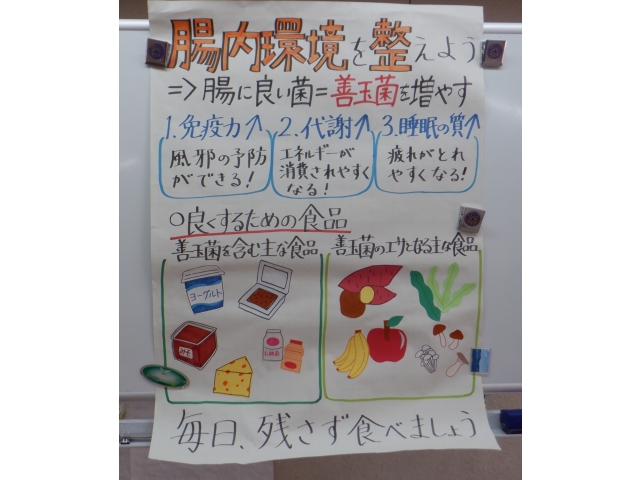 腸内環境を整えよう
⇒腸に良い菌=善玉菌を増やす
1.免疫力↑ 2.代謝↑ 3.睡眠の質↑
風邪の予防
ができる!
エネルギーが
消費されやすく
なる!
疲れがとれ
やすくなる!
○良くするための食品
善玉菌を含む主な食品
善玉菌のエサとなる主な食品
ヨーグルト
みそ
乳酸菌
毎日、残さず食べましょう